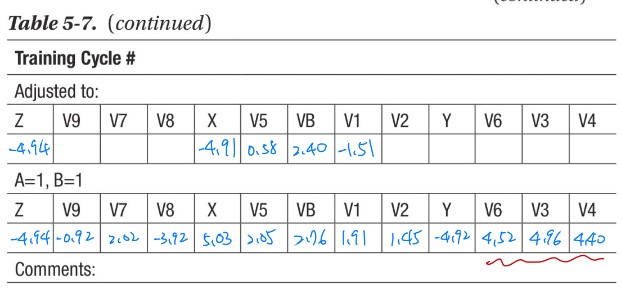 Table 5-7. (continued)
Training Cycle #
Adjusted to:
Z V9 V7 V8 X V5 VB V1 V2 Y V6 V3 V4
-4.94 -4.91 0.58 2.40 -1.51
A=1, B=1
Z V9 V7 V8 X V5 VB V1 V2 Y V6 V3 V4
-4.94 -0.92 2.02 -3.92 5.03 2.05 2.76 1.91 1.45 -4.92 4.52 4.96 4.40
Comments: